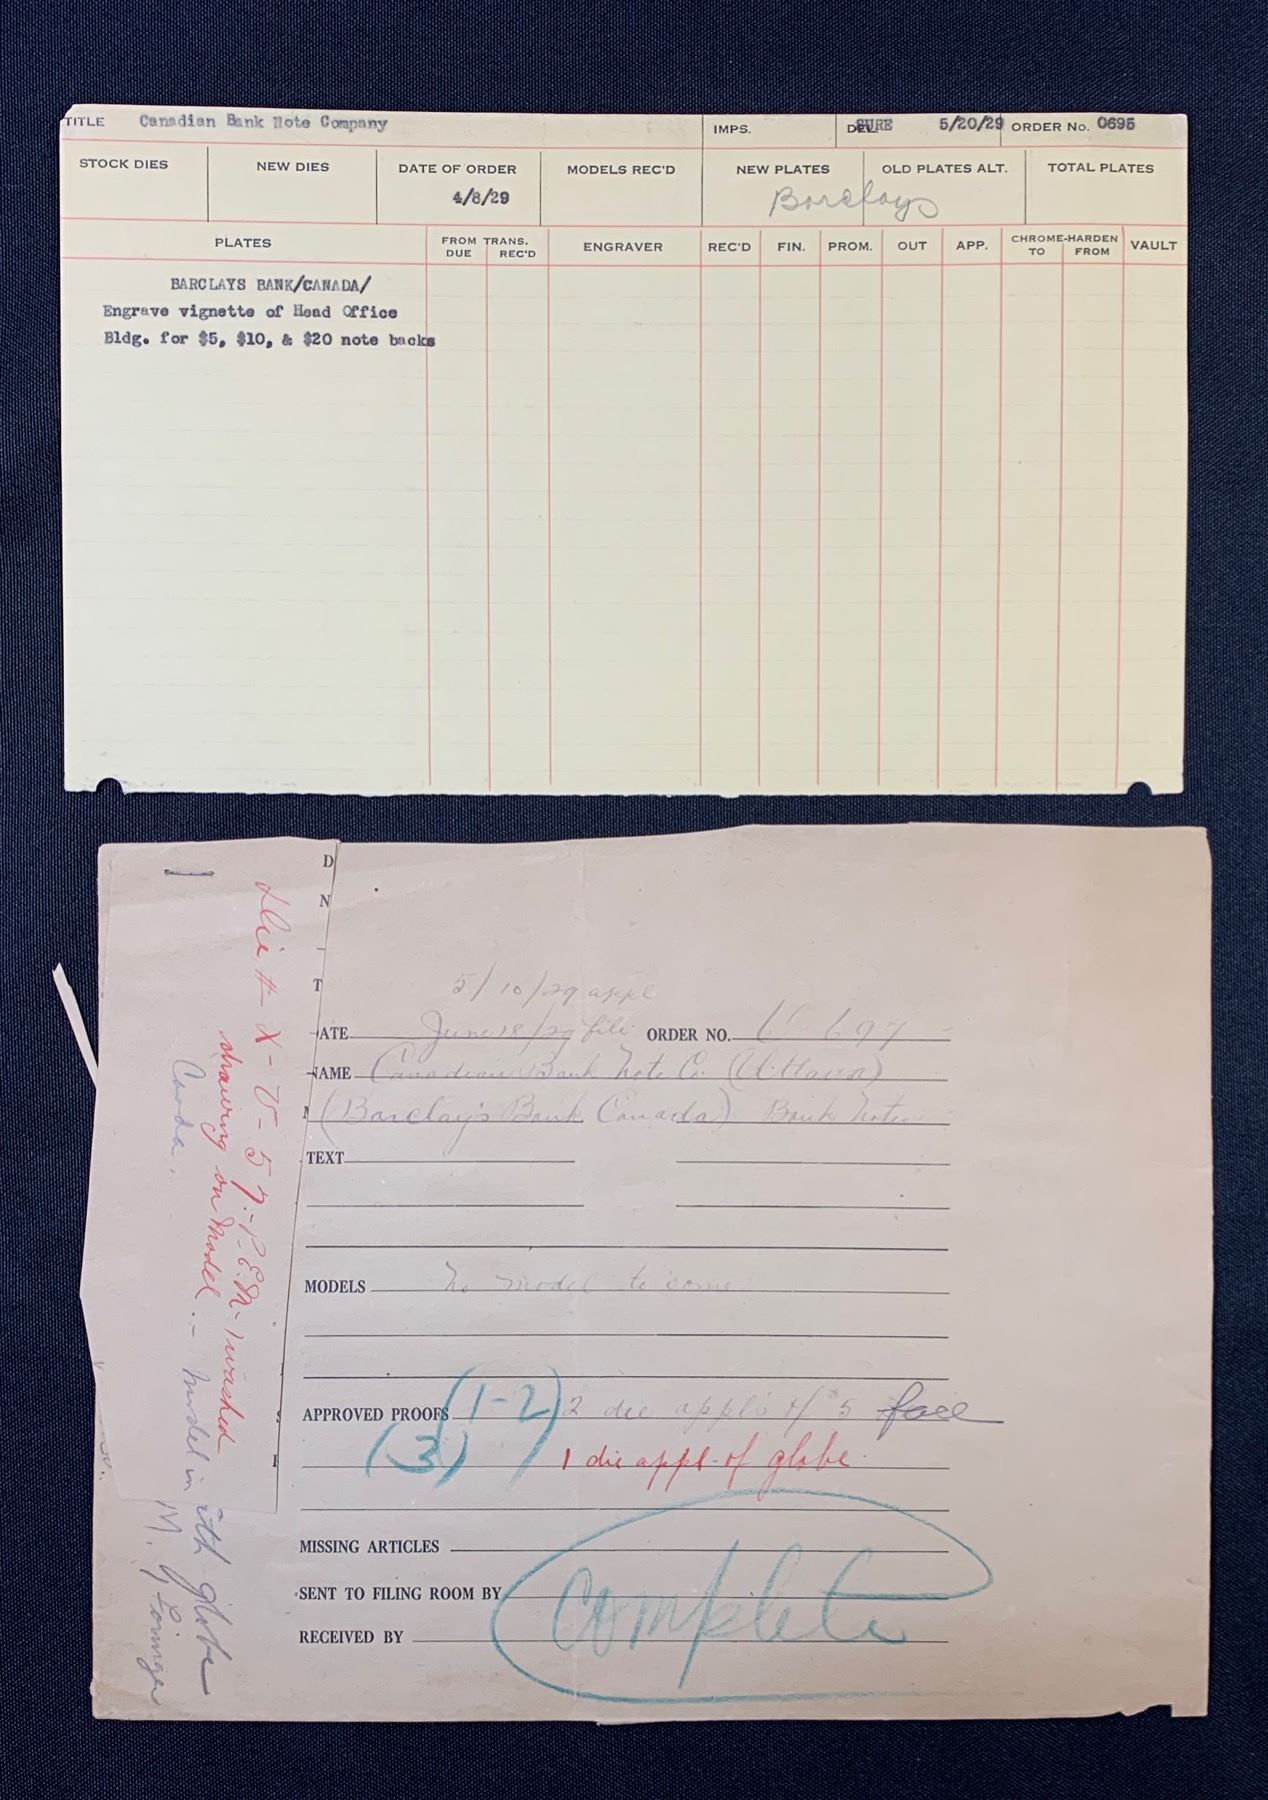 TITLE Canadian Bank Note Company IMPS. DEL. SURE 5/20/29 ORDER No. 0695
STOCK DIES NEW DIES DATE OF ORDER MODELS REC'D NEW PLATES OLD PLATES ALT. TOTAL PLATES
4/8/29 Barclays
PLATES FROM TRANS. DUE REC'D ENGRAVER REC'D FIN. PROM. OUT APP. CHROME-HARDEN TO FROM VAULT
BARCLAYS BANK/CANADA/
Engrave vignette of Head Office
Bldg. for $5, $10, & $20 note backs
D
N
T
5/10/29 appl
ATE June 18/29 file ORDER NO. 697
NAME Canadian Bank Note Co. (Ottawa)
(Barclay's Bank Canada) Bank Notes
TEXT
MODELS No model to come
APPROVED PROOFS (1-2) 2 die appls of $5 face
(3) 1 die appl. of globe.
MISSING ARTICLES
SENT TO FILING ROOM BY
RECEIVED BY
Complete
Die # X-V-57.- P.E.M. washed
drawing on Model. - Model in
Canada.
with globe
M.